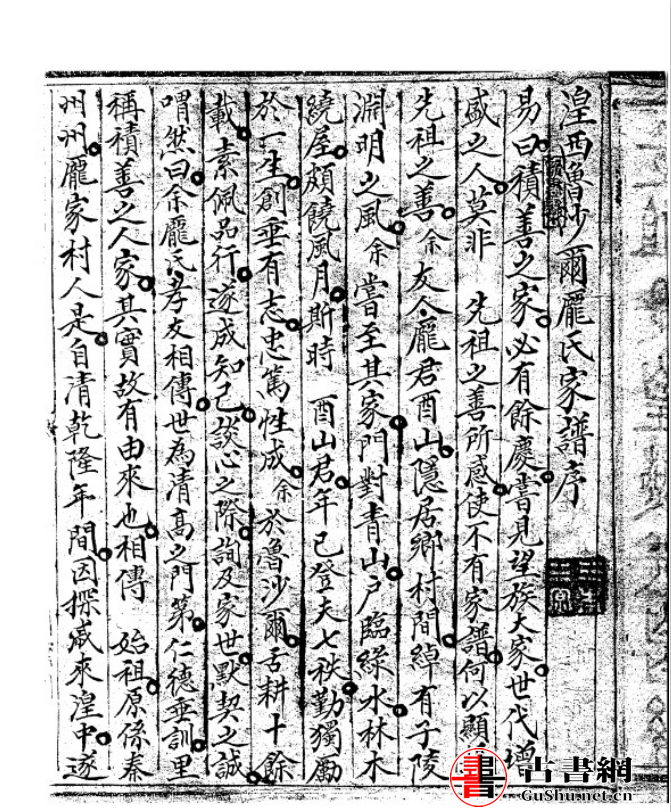 湟西魯沙爾龐氏家譜序
易曰積善之家必有餘慶嘗見望族大家世代增
盛之人莫非 先祖之善所感使不有家譜何以顯
先祖之善余友人龐君酉山隱居鄉村間綽有子陵
淵明之風余嘗至其家門對青山户臨綠水林木
繞屋頗饒風月斯時 酉山君年已登夫七秩勤獨勵
於一生創垂有志忠篤性成余於魯沙爾舌耕十餘
載素佩品行遂成知己談心之際詢及家世默契之誠
喟然曰余龐氏孝友相傳世為清高之門第仁德垂訓里
稱積善之人家其實故有由來也相傳 始祖原係秦
州州龐家村人是自清乾隆年間因探戚來湟中遂
書 古書網
GuShu.net.cn